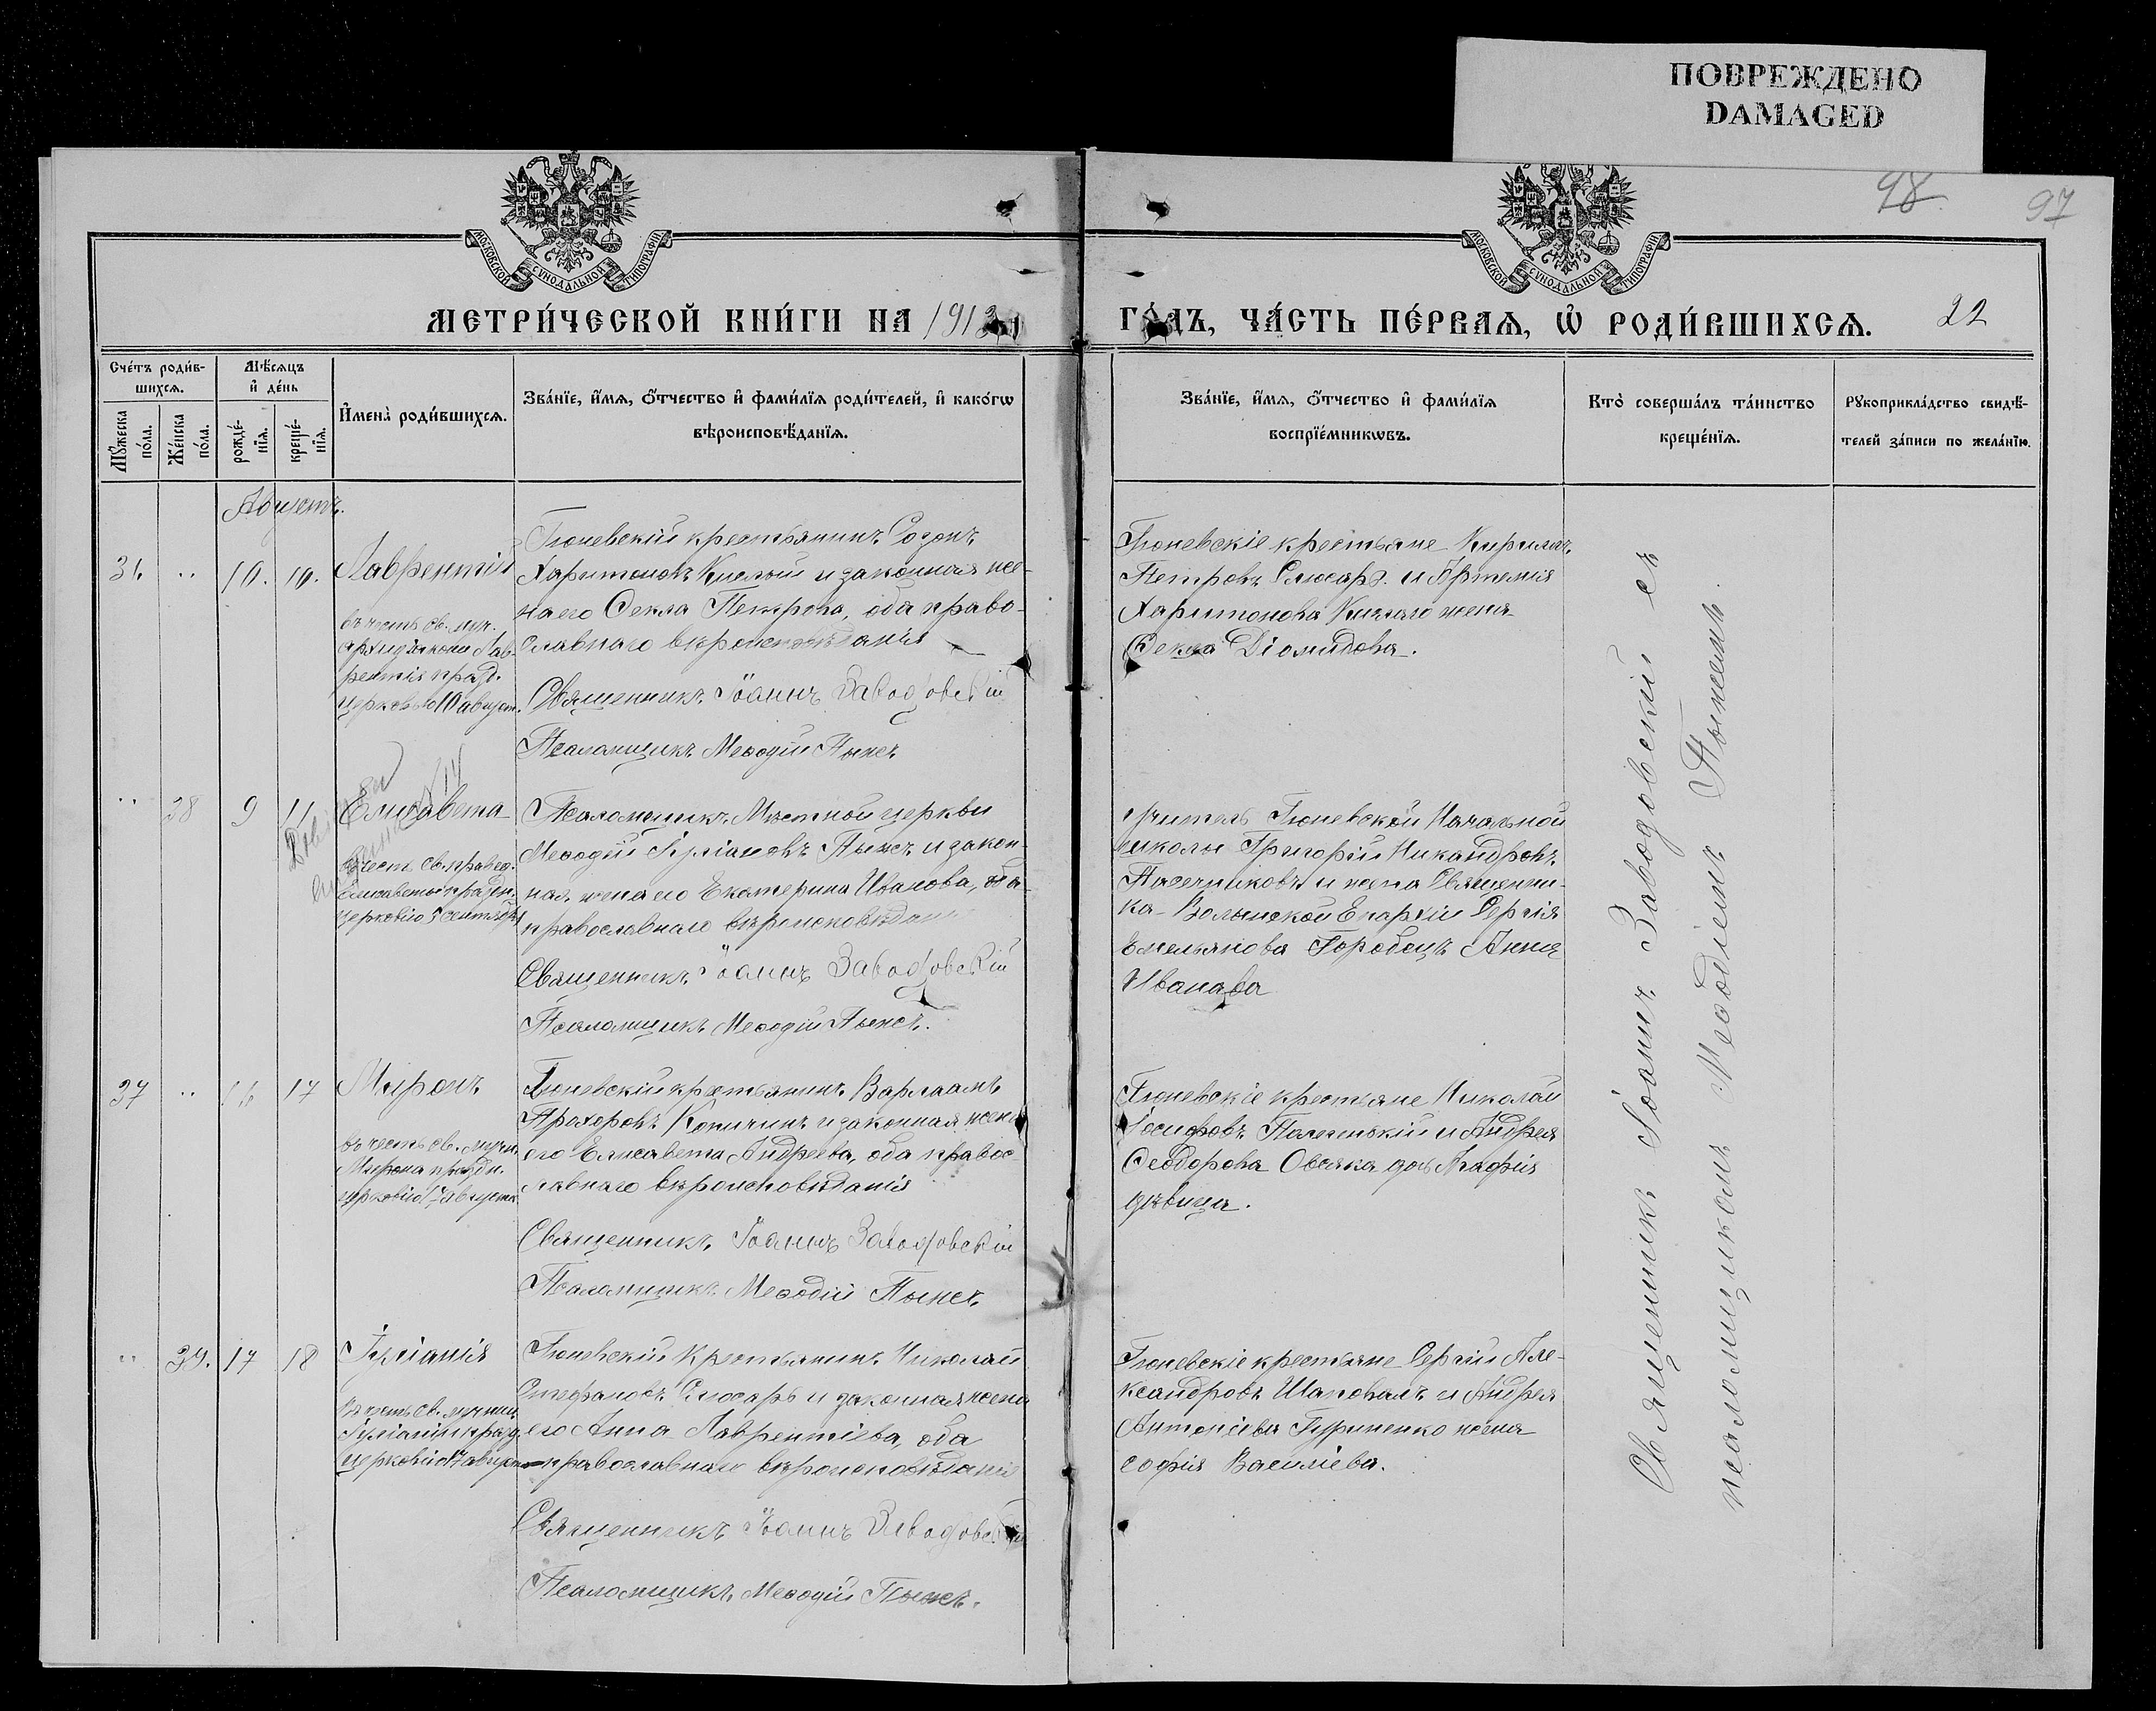 ПОВРЕЖДЕНО
DAMAGED
98
97
МОСКОВСКОЙ СѴНОДАЛЬНОЙ ТИПОГРАФІИ
МОСКОВСКОЙ СѴНОДАЛЬНОЙ ТИПОГРАФІИ
МЕТРИ́ЧЕСКОЙ КНИ́ГИ НА 1913
ГО́ДЪ, ЧА́СТЬ ПЕ́РВАѦ, Ѡ҆ РОДИ́ВШИХСѦ.
22
Сче́тъ роди́в-
шихсѧ.
Мѣ́сѧцъ
и҆ де́нь
Мꙋ́жеска
по́ла.
Же́нска
по́ла.
рожде́-
нїѧ.
креще́-
нїѧ.
И҆мена̀ роди́вшихсѧ.
Зва́нїе, и҆́мѧ, ѻ҆́тчество и҆ фами́лїѧ роди́телей, и҆ како́гѡ
вѣроисповѣ́данїѧ.
Зва́нїе, и҆́мѧ, ѻ҆́тчество и҆ фами́лїѧ
воспрїе́мникѡвъ.
Кто̀ соверша́лъ та́инство
креще́нїѧ.
Рꙋкоприкла́дство свидѣ́-
телей за́писи по жела́нїю.
Августъ.
10. 10. Лаврентій
въ честь св. муч.
архидіакона Лав-
рентія празд.
церковью 10 август.
Гюневскій крестьянинъ Созонъ
Харитоновъ Кислый и законная же-
на его Ѳекла Петрова, оба право-
славнаго вѣроисповѣданія
Священникъ Іоаннъ Заводовскій
Псаломщикъ Меѳодій Пыжъ
Гюневскіе крестьяне Кириллъ
Петровъ Слюсарь и Артемія
Харитонова Кислаго жена
Ѳекла Діомидова.
38 9 11 Елисавета
въ честь св. правед.
Елисаветы празднц.
церковію 5 сентября
Псаломщикъ Мѣстной церкви
Меѳодій Іуліановъ Пыжъ и закон-
ная жена его Екатерина Иванова, оба
православнаго вѣроисповѣданія
Священникъ Іоаннъ Заводовскій
Псаломщикъ Меѳодій Пыжъ.
Учитель Гюневской Начальной
школы Григорій Никандровъ
Пасечниковъ и жена Священни-
ка Волынской Епархіи Сергія
Емельянова Городецъ Анна
Иванова
37 16 17 Миронъ
въ честь св. мучн.
Мирона праздн.
церковію 17 августа
Гюневскій крестьянинъ Варлаамъ
Прохоровъ Копичинъ и законная жена
его Елисавета Андреева, оба правос-
лавнаго вѣроисповѣданія
Священникъ Іоаннъ Заводовскій
Псаломщикъ Меѳодій Пыжъ.
Гюневскіе крестьяне Николай
Іосифовъ и Андрея
Ѳеодорова Овсяка дочь Агафія
дѣвица.
39. 17 18 Іуліанія
въ честь св. мучениц
Іуліаніи празд
церковію 17 август
Гюневскій крестьянинъ Николай
Стефановъ Слюсарь и законная жена
его Анна Лаврентіева, оба
православнаго вѣроисповѣданія
Священникъ Іоаннъ Заводовскій
Псаломщикъ Меѳодій Пыжъ.
Гюневскіе крестьяне Сергій Але-
ксандровъ Шаповалъ и Андрея
Антоніева Гуриненко жена
Софія Васильева.
Священникъ Іоаннъ Заводовскій съ
псаломщикомъ Меѳодіемъ Пыжемъ.